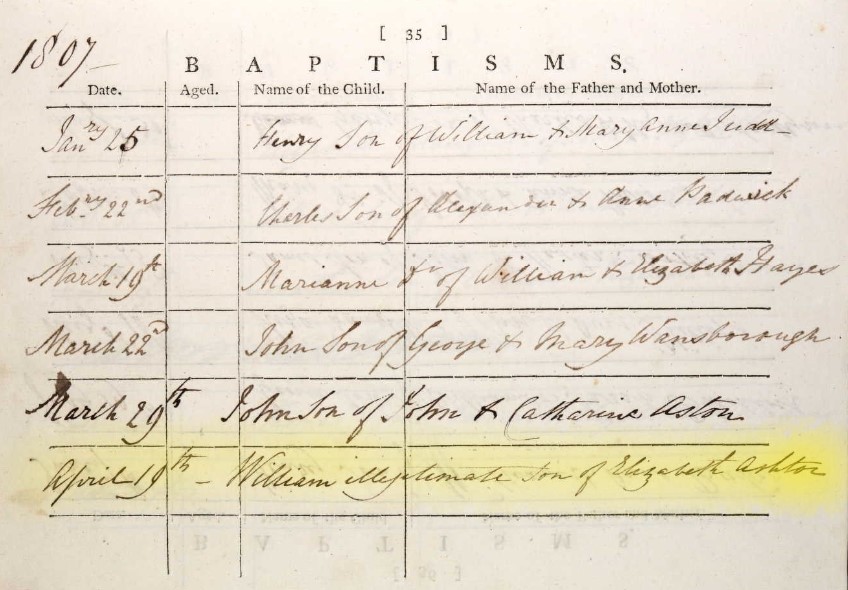 [ 35 ]
1807
BAPTISMS.
Date. Aged. Name of the Child. Name of the Father and Mother.
Janry 25 Henry Son of William & Mary Anne Judd
Febry 22nd Charles Son of Alexander & Anne Padwick
March 19th Marianne Dr of William & Elizabeth Hayes
March 22nd John Son of George & Mary Wansborough
March 29th John Son of John & Catharine Aston
April 19th - William illegitimate Son of Elizabeth Ashton